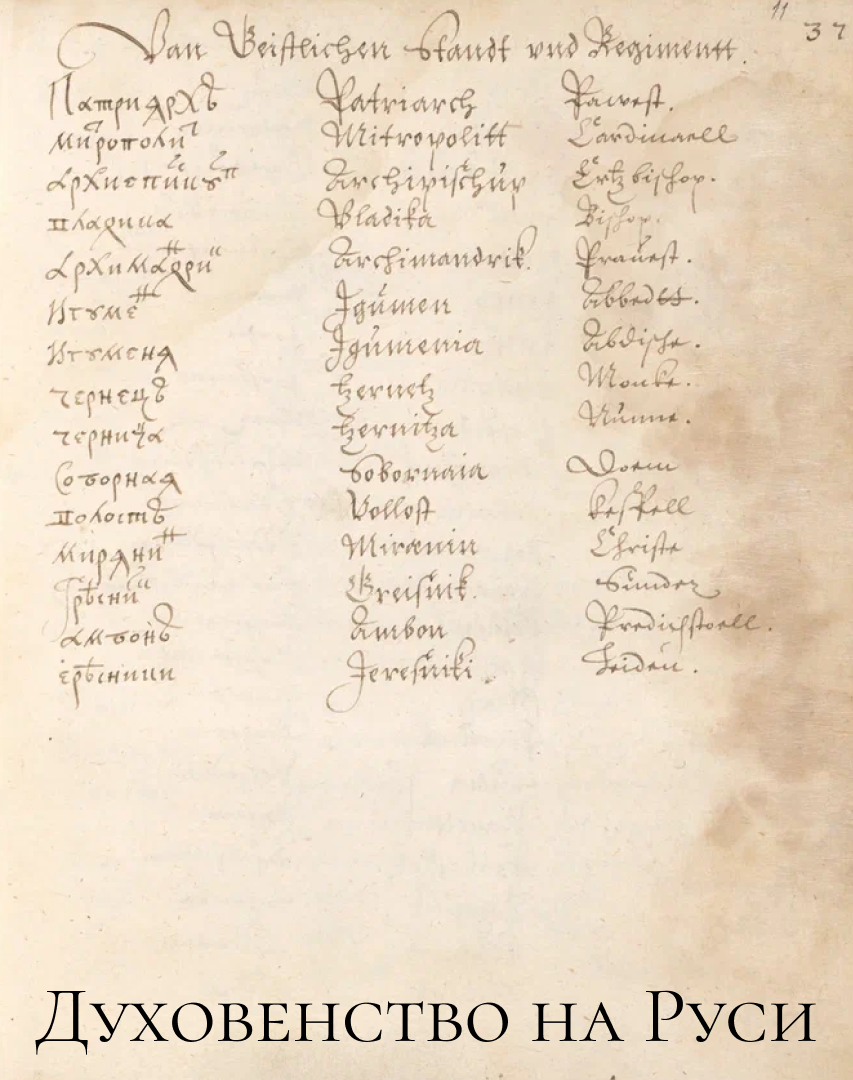 11
37
Van Geistlichen Standt vnd Regimentt.
Патриархъ Patriarch Pawest.
митрополит Mitropolitt Cardinaell
архиепискуп Archipischup Ertzbischop.
владика Vladika Bishop.
архимандрик Archimandrik. Prauest.
Игумен Igúmen Abbedtt.
Игуменя Igúmenia Abdische.
чернецъ tzernetz Monke.
черница tzernitza Núnne.
Соборная Sobornaia Doem
волость Vollost Kespell
мирянин Miranin Christe
грѣсник Greisnik. Sunder
амбонъ Ambon Predichstoell.
ерѣсники Jeresniki. Heiden.
Духовенство на Руси